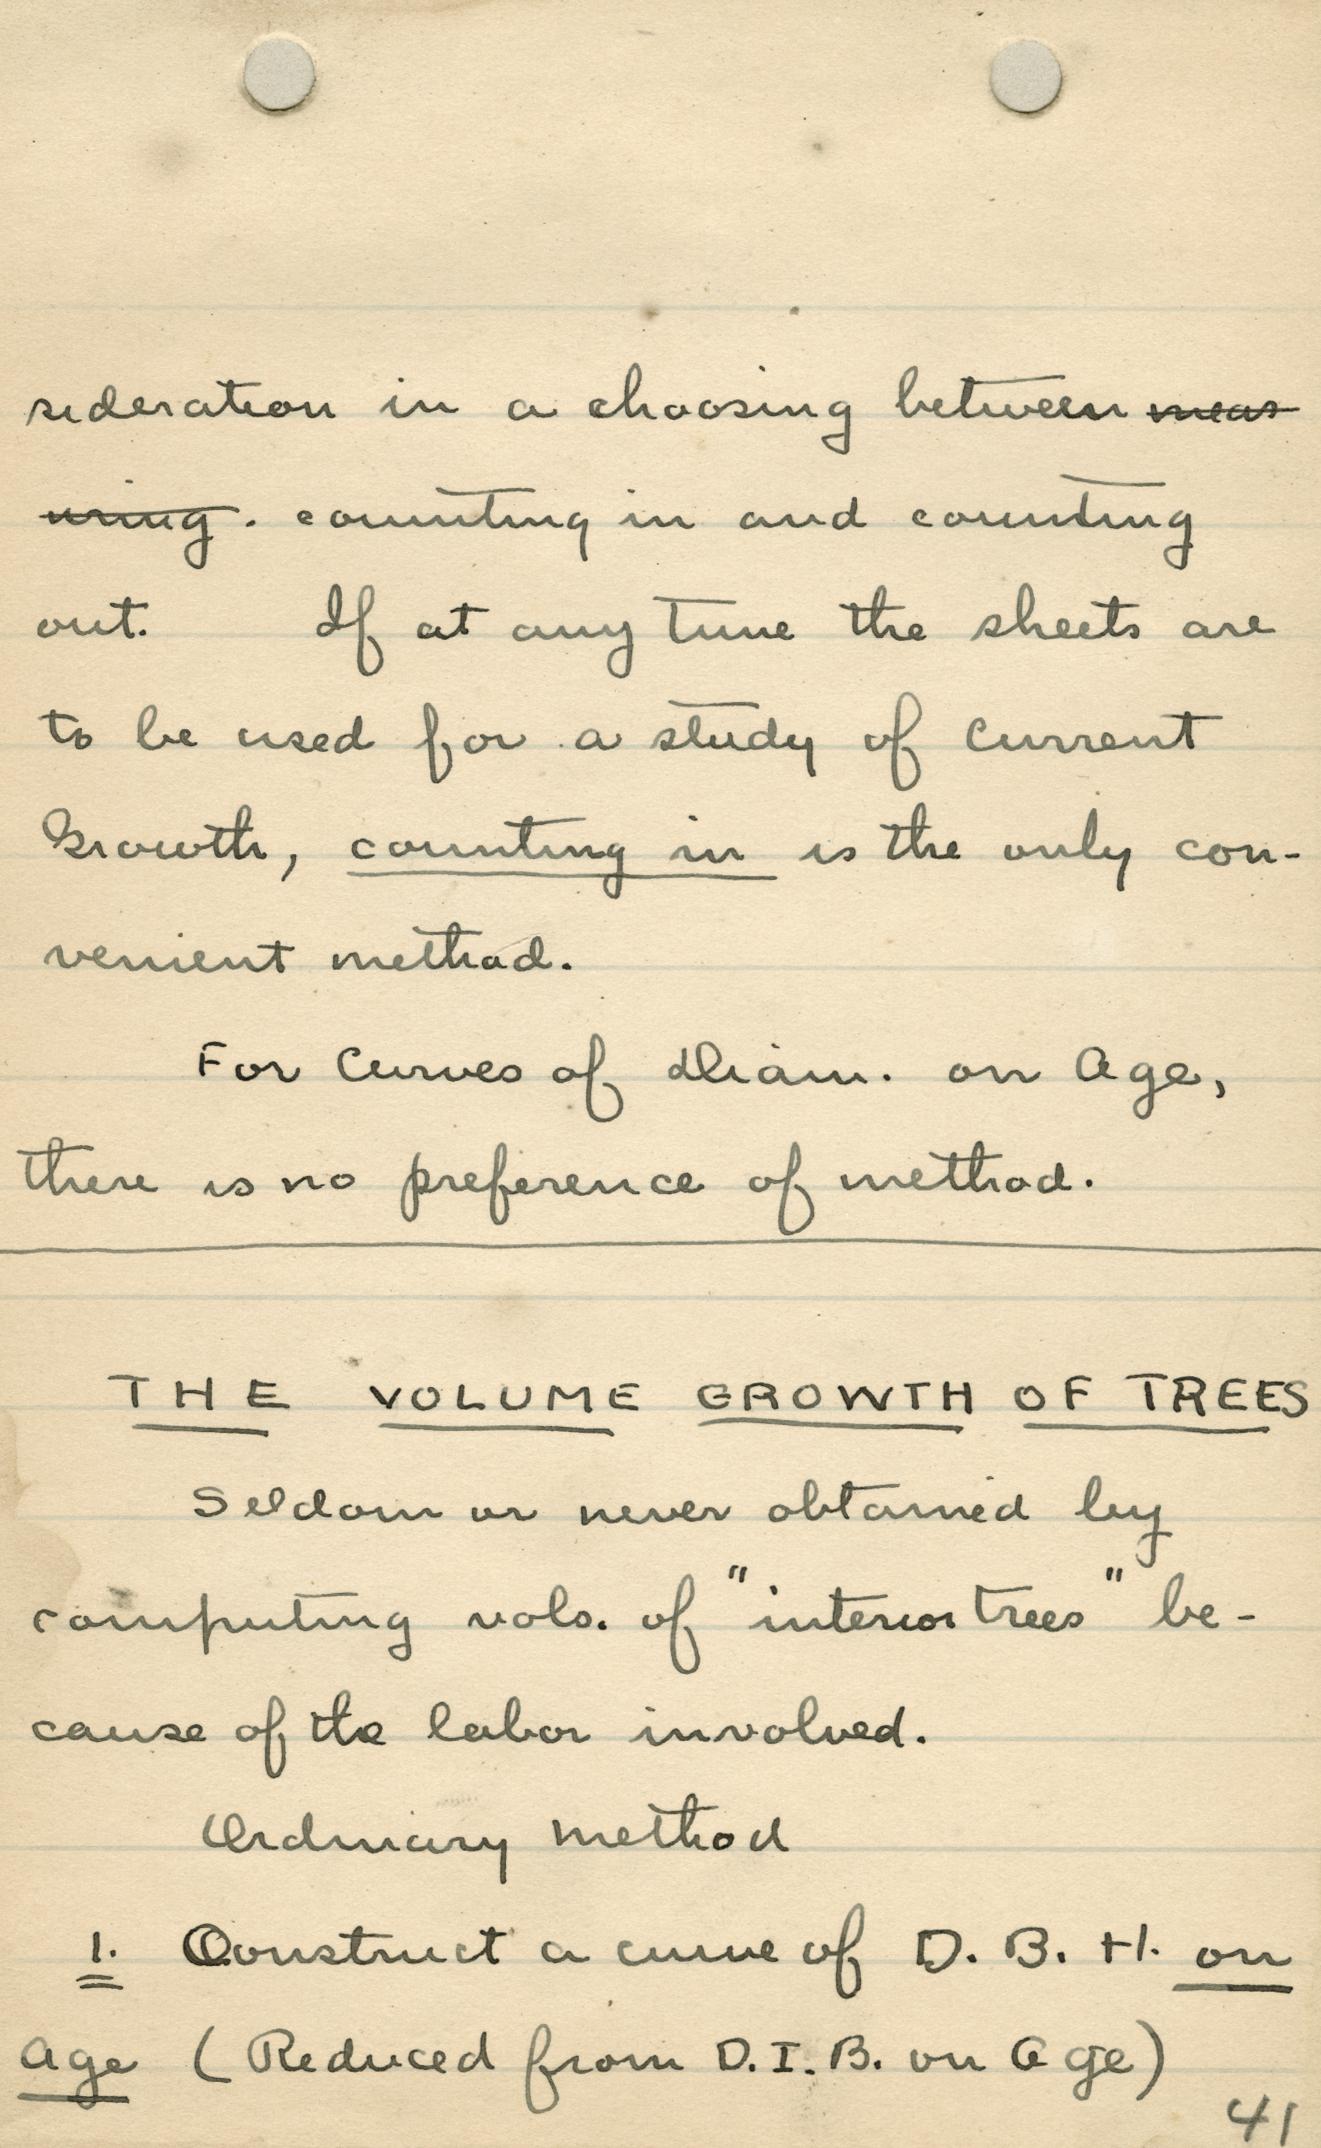 sideration in a choosing between meas
uring. counting in and counting
out. If at any time the sheets are
to be used for a study of Current
Growth, counting in is the only con-
venient method.
For Curves of diam. on Age,
there is no preference of method.
THE VOLUME GROWTH OF TREES
Seldom or never obtained by
computing vols. of "interior trees" be-
cause of the labor involved.
Ordinary Method
1. Construct a curve of D. B. H. on
Age (Reduced from D.I.B. on Age)
41